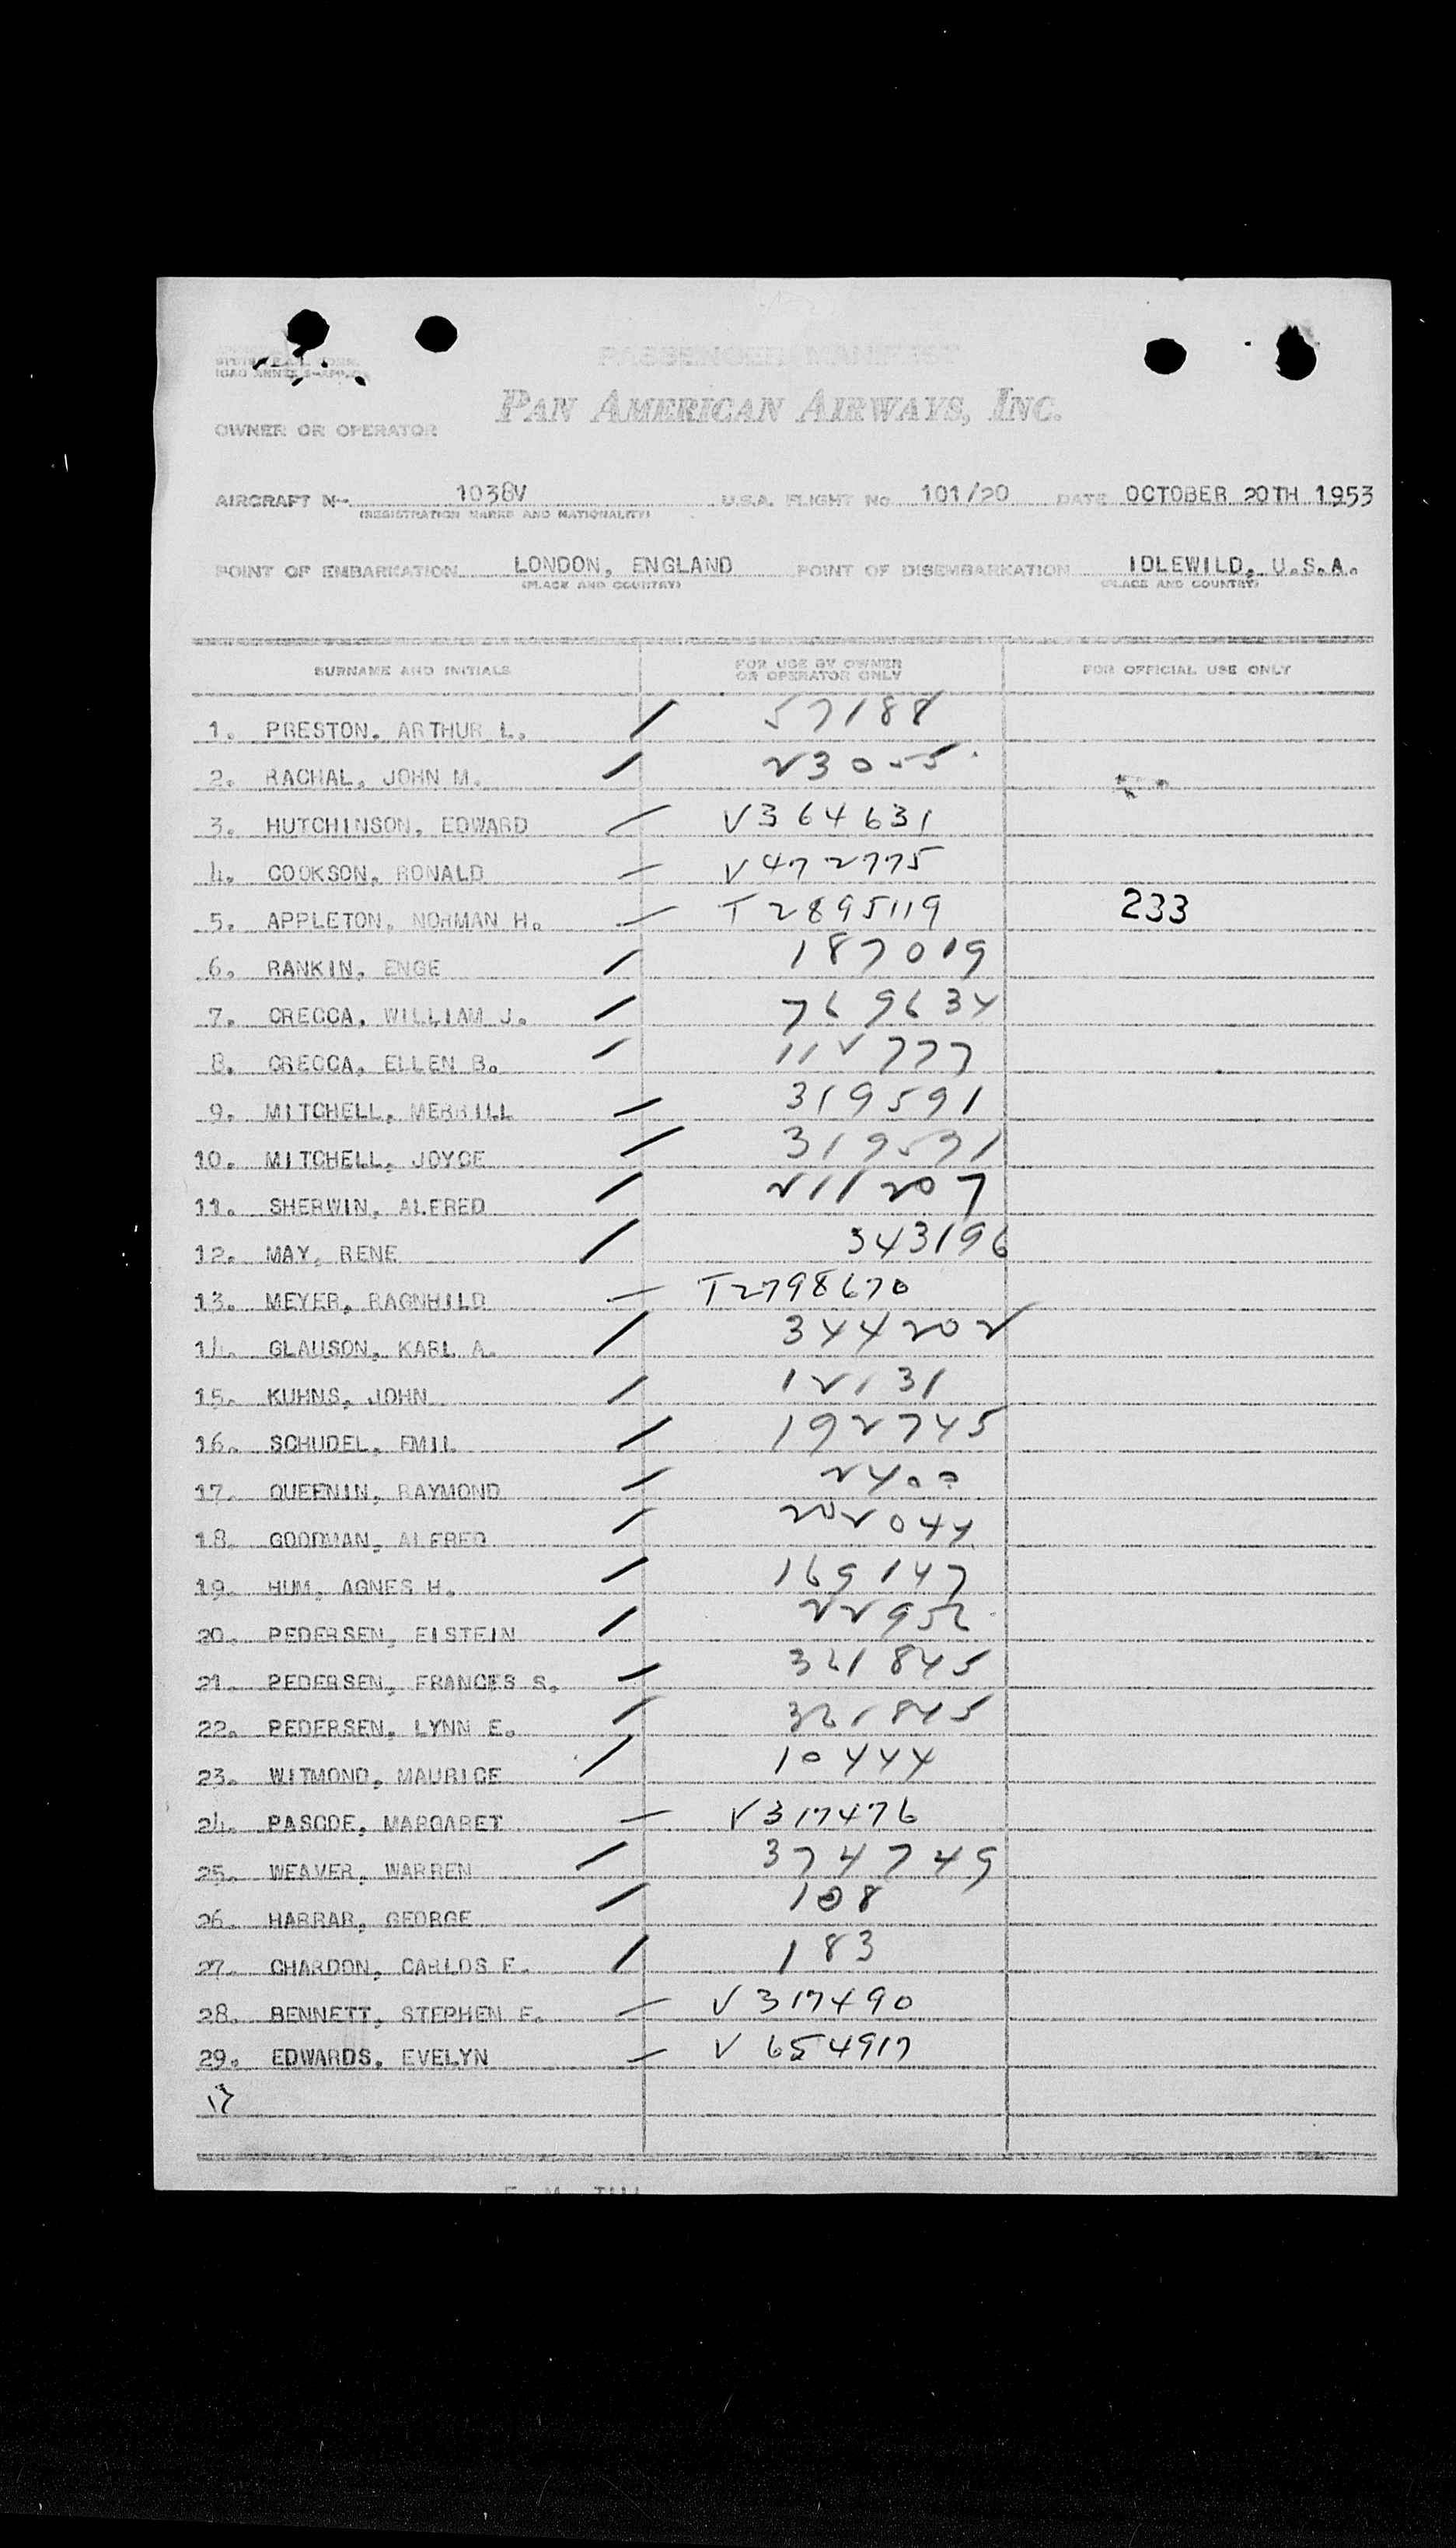 PASSENGER MANIFEST
PAN AMERICAN AIRWAYS, INC.
OWNER OR OPERATOR
AIRCRAFT N-- 1038V U.S.A. FLIGHT No 101/20 DATE OCTOBER 20TH 1953
(REGISTRATION MARKS AND NATIONALITY)
POINT OF EMBARKATION LONDON, ENGLAND POINT OF DISEMBARKATION IDLEWILD, U.S.A.
(PLACE AND COUNTRY) (PLACE AND COUNTRY)
SURNAME AND INITIALS FOR USE BY OWNER OR OPERATOR ONLY FOR OFFICIAL USE ONLY
1. PRESTON, ARTHUR L. 57188
2. RACHAL, JOHN M. 23055
3. HUTCHINSON, EDWARD V364631
4. COOKSON, RONALD V472775
5. APPLETON, NORMAN H. T2895119 233
6. RANKIN, ENGE 187019
7. CRECCA, WILLIAM J. 769634
8. CRECCA, ELLEN B. 112777
9. MITCHELL, MERRILL 319591
10. MITCHELL, JOYCE 319591
11. SHERWIN, ALFRED 211207
12. MAY, RENE 343196
13. MEYER, RAGNHILD T2798670
14. GLAUSON, KARL A. 344202
15. KUHNS, JOHN 12131
16. SCHUDEL, EMIL 192745
17. QUEENIN, RAYMOND
18. GOODMAN, ALFRED 202044
19. HUM, AGNES H. 169147
20. PEDERSEN, EISTEIN 22952
21. PEDERSEN, FRANCES S. 321845
22. PEDERSEN, LYNN E. 321845
23. WITMOND, MAURICE 10444
24. PASCOE, MARGARET V317476
25. WEAVER, WARREN 374749
26. HARRAR, GEORGE 108
27. CHARDON, CARLOS E. 183
28. BENNETT, STEPHEN E. V317490
29. EDWARDS, EVELYN V654917
17